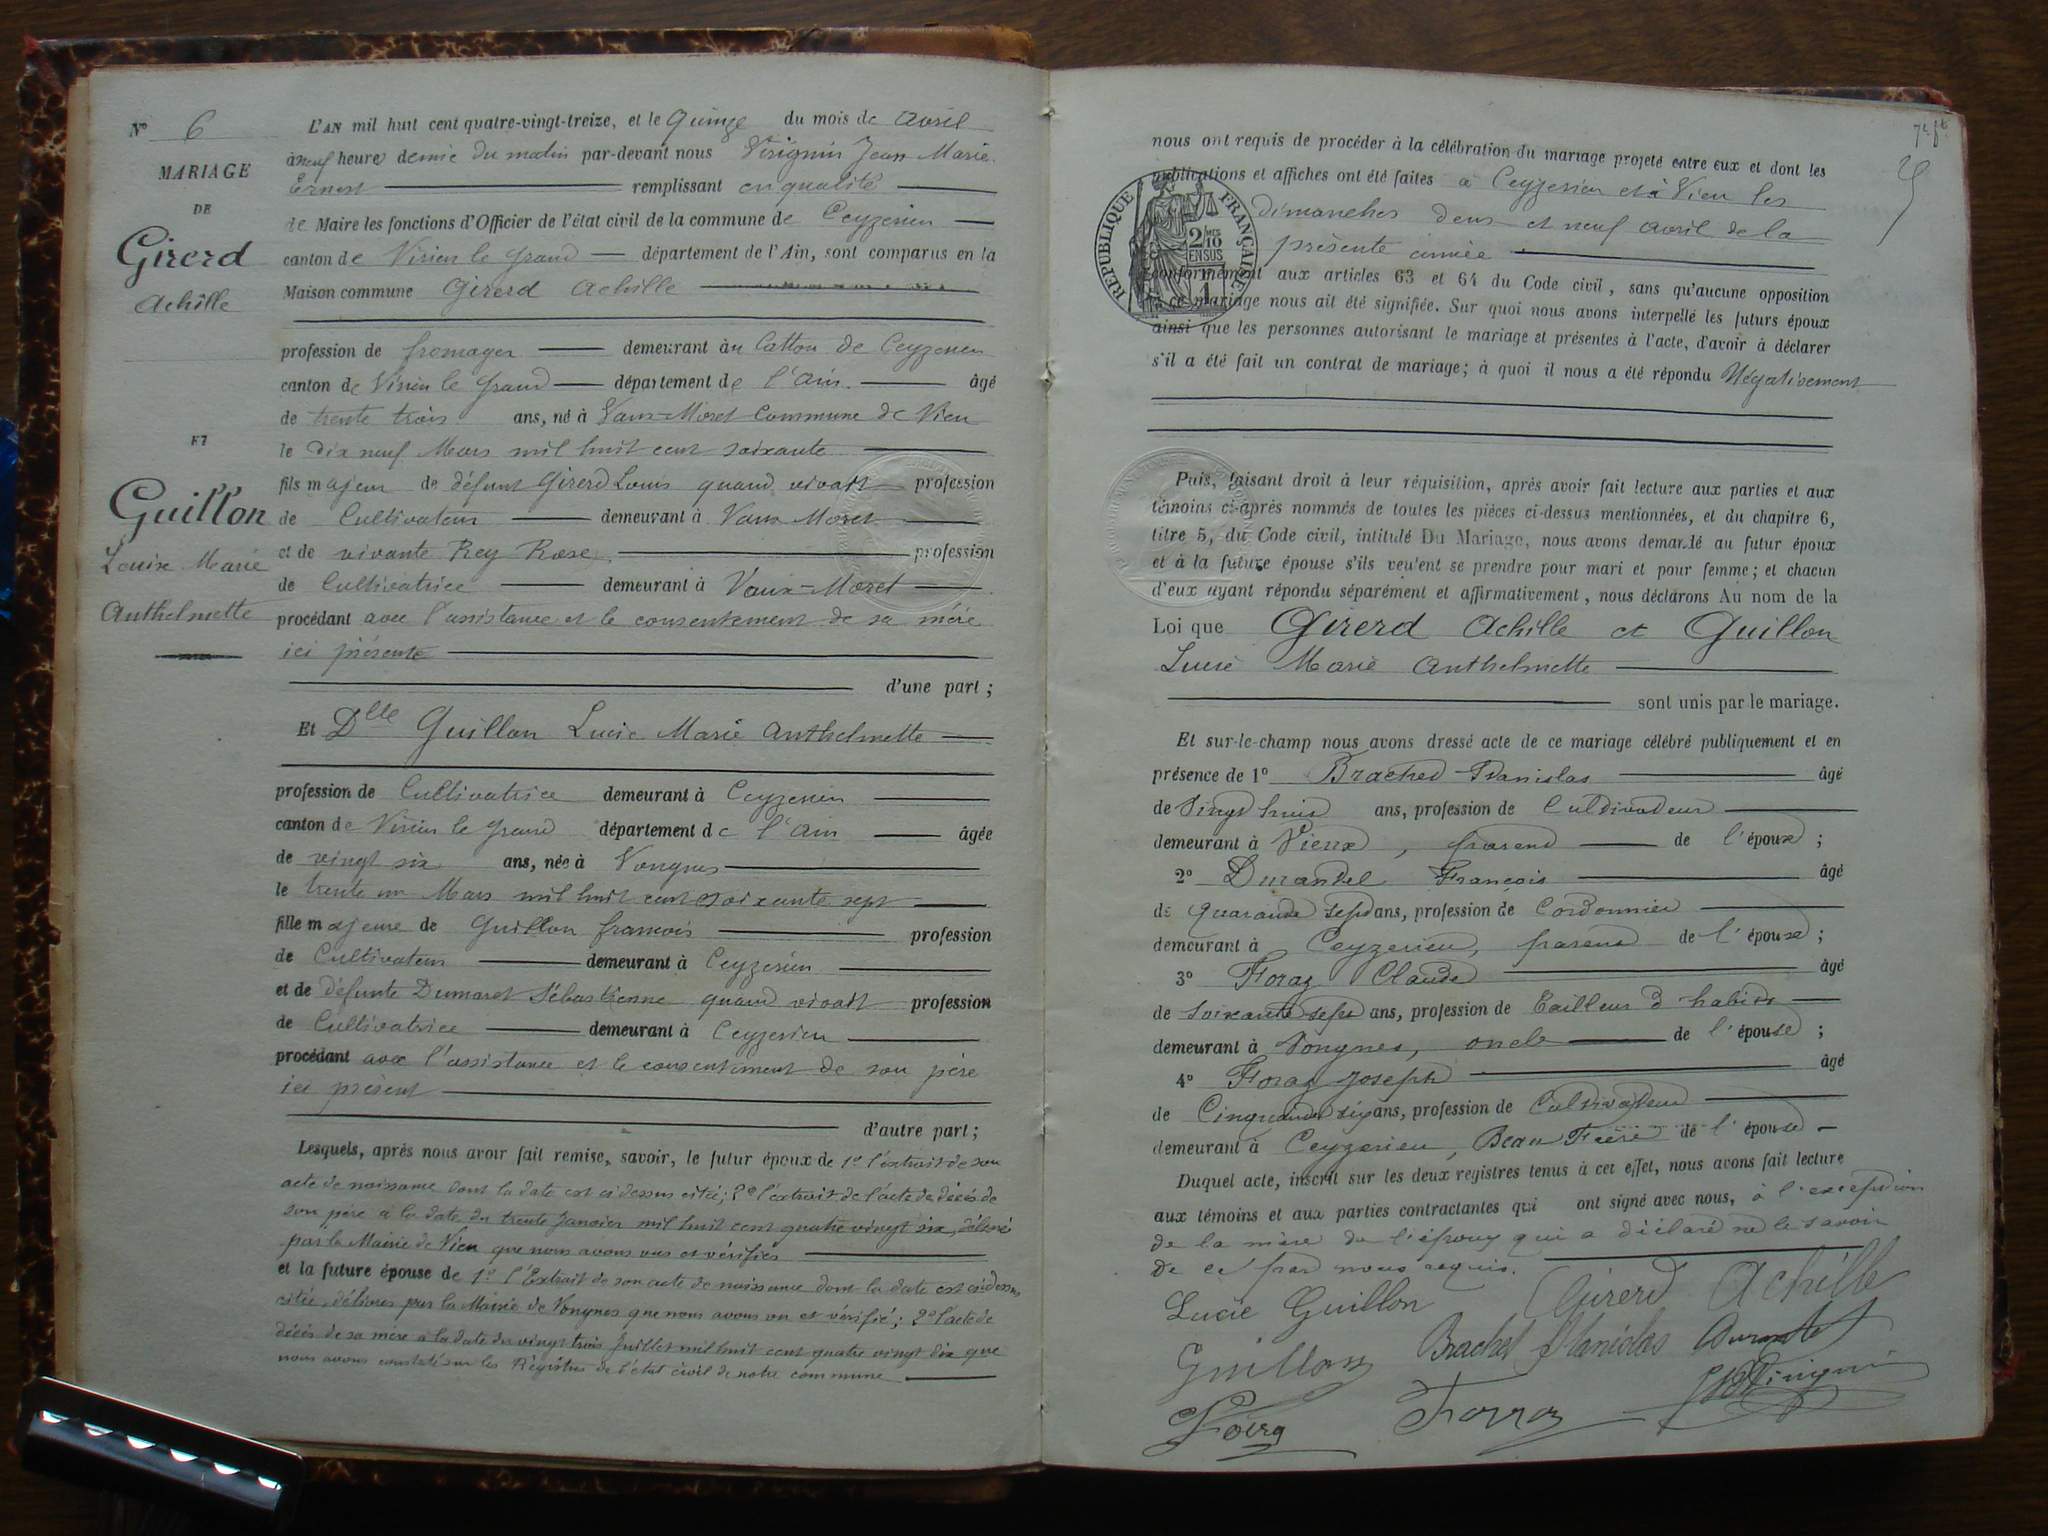 N° 6
MARIAGE
DE
Girerd
Achille
ET
Guillon
Louise Marie
Anthelmette
L'AN mil huit cent quatre-vingt-treize, et le Quinze du mois de avril
à neuf heure demie du matin par-devant nous Virignin Jean Marie
Ernest remplissant en qualité
de Maire les fonctions d'Officier de l'état civil de la commune de Ceyzerieu
canton de Virieu le Grand département de l'Ain, sont comparus en la
Maison commune Girerd Achille
profession de fromager demeurant au Catton de Ceyzerieu
canton de Virieu le Grand département de l'Ain âgé
de trente trois ans, né à Vaux-Moret Commune de Vieu
le dix neuf Mars mil huit cent soixante
fils majeur de défunt Girerd Louis quand vivait profession
de Cultivateur demeurant à Vaux Moret
et de vivante Rey Rose profession
de Cultivatrice demeurant à Vaux-Moret
procédant avec l'assistance et le consentement de sa mère
ici présente
d'une part ;
Et Dlle Guillon Lucie Marie Anthelmette
profession de Cultivatrice demeurant à Ceyzerieu
canton de Virieu le Grand département de l'Ain âgée
de vingt six ans, née à Vongnes
le trente un Mars mil huit cent soixante sept
fille majeure de Guillon françois profession
de Cultivateur demeurant à Ceyzerieu
et de défunte Dumaret Sébastienne quand vivait profession
de Cultivatrice demeurant à Ceyzerieu
procédant avec l'assistance et le consentement de son père
ici présent
d'autre part ;
Lesquels, après nous avoir fait remise, savoir, le futur époux de 1° l'extrait de son
acte de naissance dont la date est ci dessus citée ; 2° l'extrait de l'acte de décès de
son père à la date du trente Janvier mil huit cent quatre vingt six, délivré
par la Mairie de Vieu que nous avons vus et vérifiés
et la future épouse de 1° l'Extrait de son acte de naissance dont la date est ci dessus
citée, délivrés par la Mairie de Vongnes que nous avons vu et vérifié ; 2° l'acte de
décès de sa mère à la date du vingt trois Juillet mil huit cent quatre vingt dix que
nous avons constaté sur les Régistres de l'état civil de notre commune
7e ft
nous ont requis de procéder à la célébration du mariage projeté entre eux et dont les
publications et affiches ont été faites à Ceyzerieu et à Vieu les
dimanches deux et neuf avril de la
présente année
RÉPUBLIQUE FRANÇAISE
2/10 MES
EN SUS
1
conformément aux articles 63 et 64 du Code civil, sans qu'aucune opposition
à ce mariage nous ait été signifiée. Sur quoi nous avons interpellé les futurs époux
ainsi que les personnes autorisant le mariage et présentes à l'acte, d'avoir à déclarer
s'il a été fait un contrat de mariage ; à quoi il nous a été répondu Négativement
Puis, faisant droit à leur réquisition, après avoir fait lecture aux parties et aux
témoins ci-après nommés de toutes les pièces ci-dessus mentionnées, et du chapitre 6,
titre 5, du Code civil, intitulé Du Mariage, nous avons demandé au futur époux
et à la future épouse s'ils veulent se prendre pour mari et pour femme ; et chacun
d'eux ayant répondu séparément et affirmativement, nous déclarons Au nom de la
Loi que Girerd Achille et Guillon
Lucie Marie Anthelmette
sont unis par le mariage.
Et sur-le-champ nous avons dressé acte de ce mariage célébré publiquement et en
présence de 1° Brachet Stanislas âgé
de Vingt huit ans, profession de Cultivateur
demeurant à Vieux, parent de l'époux ;
2° Durantel François âgé
de quarante sept ans, profession de Cordonnier
demeurant à Ceyzerieu, parent de l'épouse ;
3° Foraz Claude âgé
de soixante sept ans, profession de Tailleur d'habits
demeurant à Vongnes, oncle de l'épouse ;
4° Foraz Joseph âgé
de Cinquante six ans, profession de Cultivateur
demeurant à Ceyzerieu, Beau Frère de l'épouse
Duquel acte, inscrit sur les deux registres tenus à cet effet, nous avons fait lecture
aux témoins et aux parties contractantes qui ont signé avec nous, à l'exception
de la mère de l'époux qui a déclaré ne le savoir
de ce part nous requis.
Lucie Guillon Girerd Achille
Guillon Brachet Stanislas Durantet
Virignin